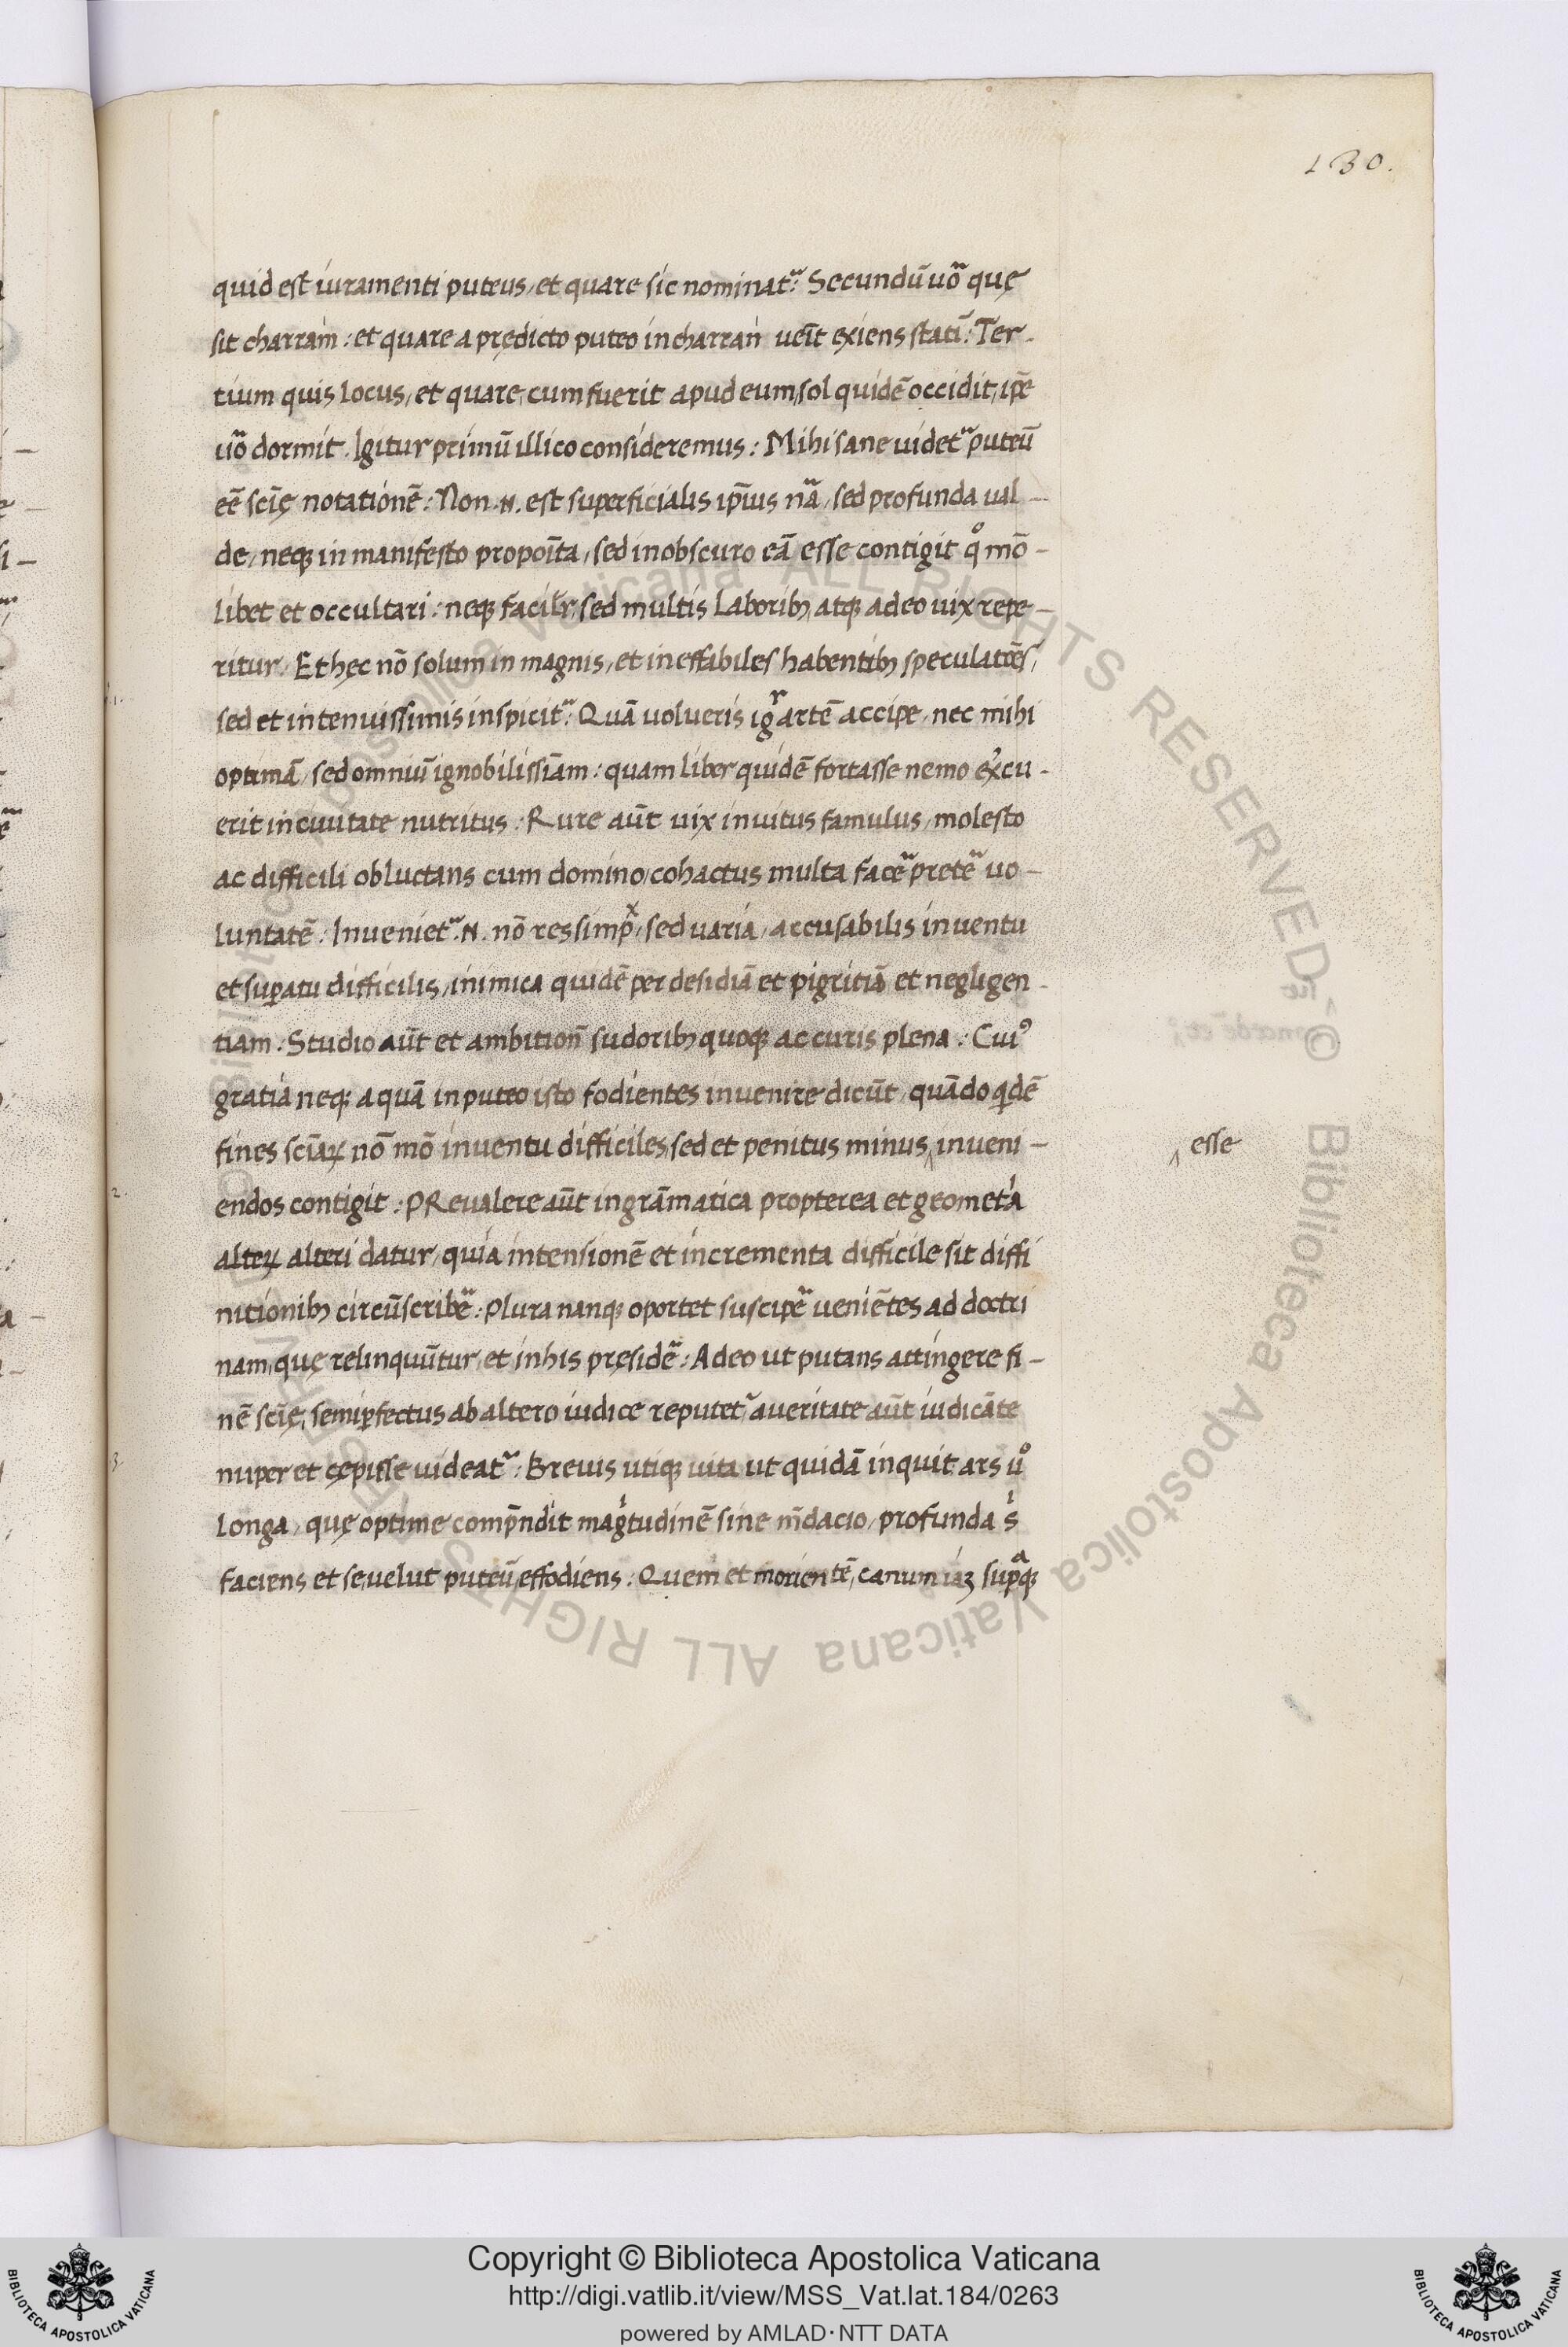 130.
quid est iuramenti puteus, et quare sic nominat᷑: Secundū uō᷑ quę
sit charram: et quare a prędicto puteo in charran ueīt exiens statī: Ter-
tium quis locus, et quare, cum fuerit apud eum, sol quidē occidit, ip̄e
uō᷑ dormit. Igitur primū illico consideremus: Mihi sane uidet᷑ puteū
eē scīę notationē: Non .N. est superficialis ip̄ius nā᷑, sed profunda ual-
de, neqꝫ in manifesto propoīta, sed in obscuro eā esse contigit qͦ mō-
libet et occultari: neqꝫ facilr̄, sed multis laboribꝫ, atqꝫ adeo uix repe-
ritur. Et hęc nō solum in magnis, et ineffabiles habentibꝫ speculatōēs,
sed et in tenuissimis inspicit᷑: Quā uolueris igr̄ artē accipe, nec mihi
optimā, sed omniū ignobilissīam: quam liber quidē fortasse nemo ex᷑cu-
erit in ciuitate nutritus: Rure aūt uix inuitus famulus, molesto
ac difficili obluctans cum domino, cohactus multa facē᷑ pretē᷑ uo-
luntatē: Inueniet᷑ .N. nō res simpˣ, sed uaria, accusabilis inuentu
et suꝑatu difficilis, inimica quidē per desidiā et pigritiā et negligen-
tiam: Studio aūt et ambitioñ sudoribꝫ quoqꝫ ac curis plena: Cuiꝰ
gratia neqꝫ aquā in puteo isto fodientes inuenire dicūt, quādo qͥdē
fines scīaꝝ nō mō inuentu difficiles, sed et penitus minus ‸ inueni-
‸ esse
endos contigit: PReualere aūt in grāmatica propterea et geometͥa
alteꝝ alteri datur, quia intensionē et incrementa difficile sit diffi
nitionibꝫ circūscribē᷑: Plura nanqꝫ oportet suscipē᷑ ueniētes ad doctri
nam, quę relinquūtur, et in his pręsidē᷑: Adeo ut putans attingere fi-
nē scīę, semiꝑfectus ab altero iudice reputet᷑, a ueritate aūt iudicāte
nuper et cępisse uideat᷑: Breuis utiqꝫ uita ut quidā inquit ars uͦ
longa, quę optime comp̄ndit magͥtudinē sine m̄dacio, profunda sͥ
faciens et se, uelut puteū, effodiens: Quem et morientē, canum iaꝫ supᵃqꝫ